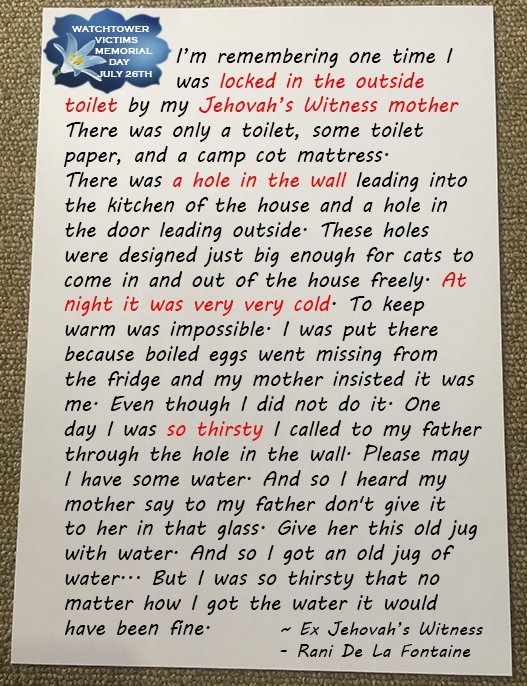 WATCHTOWER
VICTIMS
MEMORIAL
DAY
JULY 26TH
I'm remembering one time I
was locked in the outside
toilet by my Jehovah's Witness mother
There was only a toilet, some toilet
paper, and a camp cot mattress.
There was a hole in the wall leading into
the kitchen of the house and a hole in
the door leading outside. These holes
were designed just big enough for cats to
come in and out of the house freely. At
night it was very very cold. To keep
warm was impossible. I was put there
because boiled eggs went missing from
the fridge and my mother insisted it was
me. Even though I did not do it. One
day I was so thirsty I called to my father
through the hole in the wall. Please may
I have some water. And so I heard my
mother say to my father don't give it
to her in that glass. Give her this old jug
with water. And so I got an old jug of
water... But I was so thirsty that no
matter how I got the water it would
have been fine.
~ Ex Jehovah's Witness
- Rani De La Fontaine